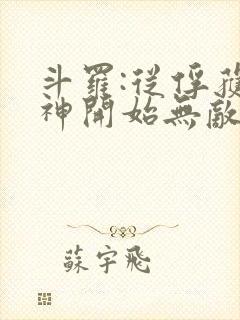 斗羅:從俘獲
神開始無敵
蘇宇飛